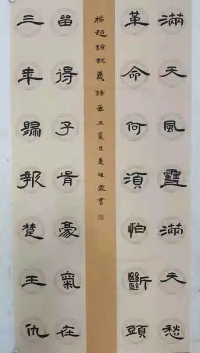 滿天風雪滿天愁
革命何須怕斷頭
楊超就義詩 壬寅夏月 書
留得子胥豪氣在
三年歸報楚王仇